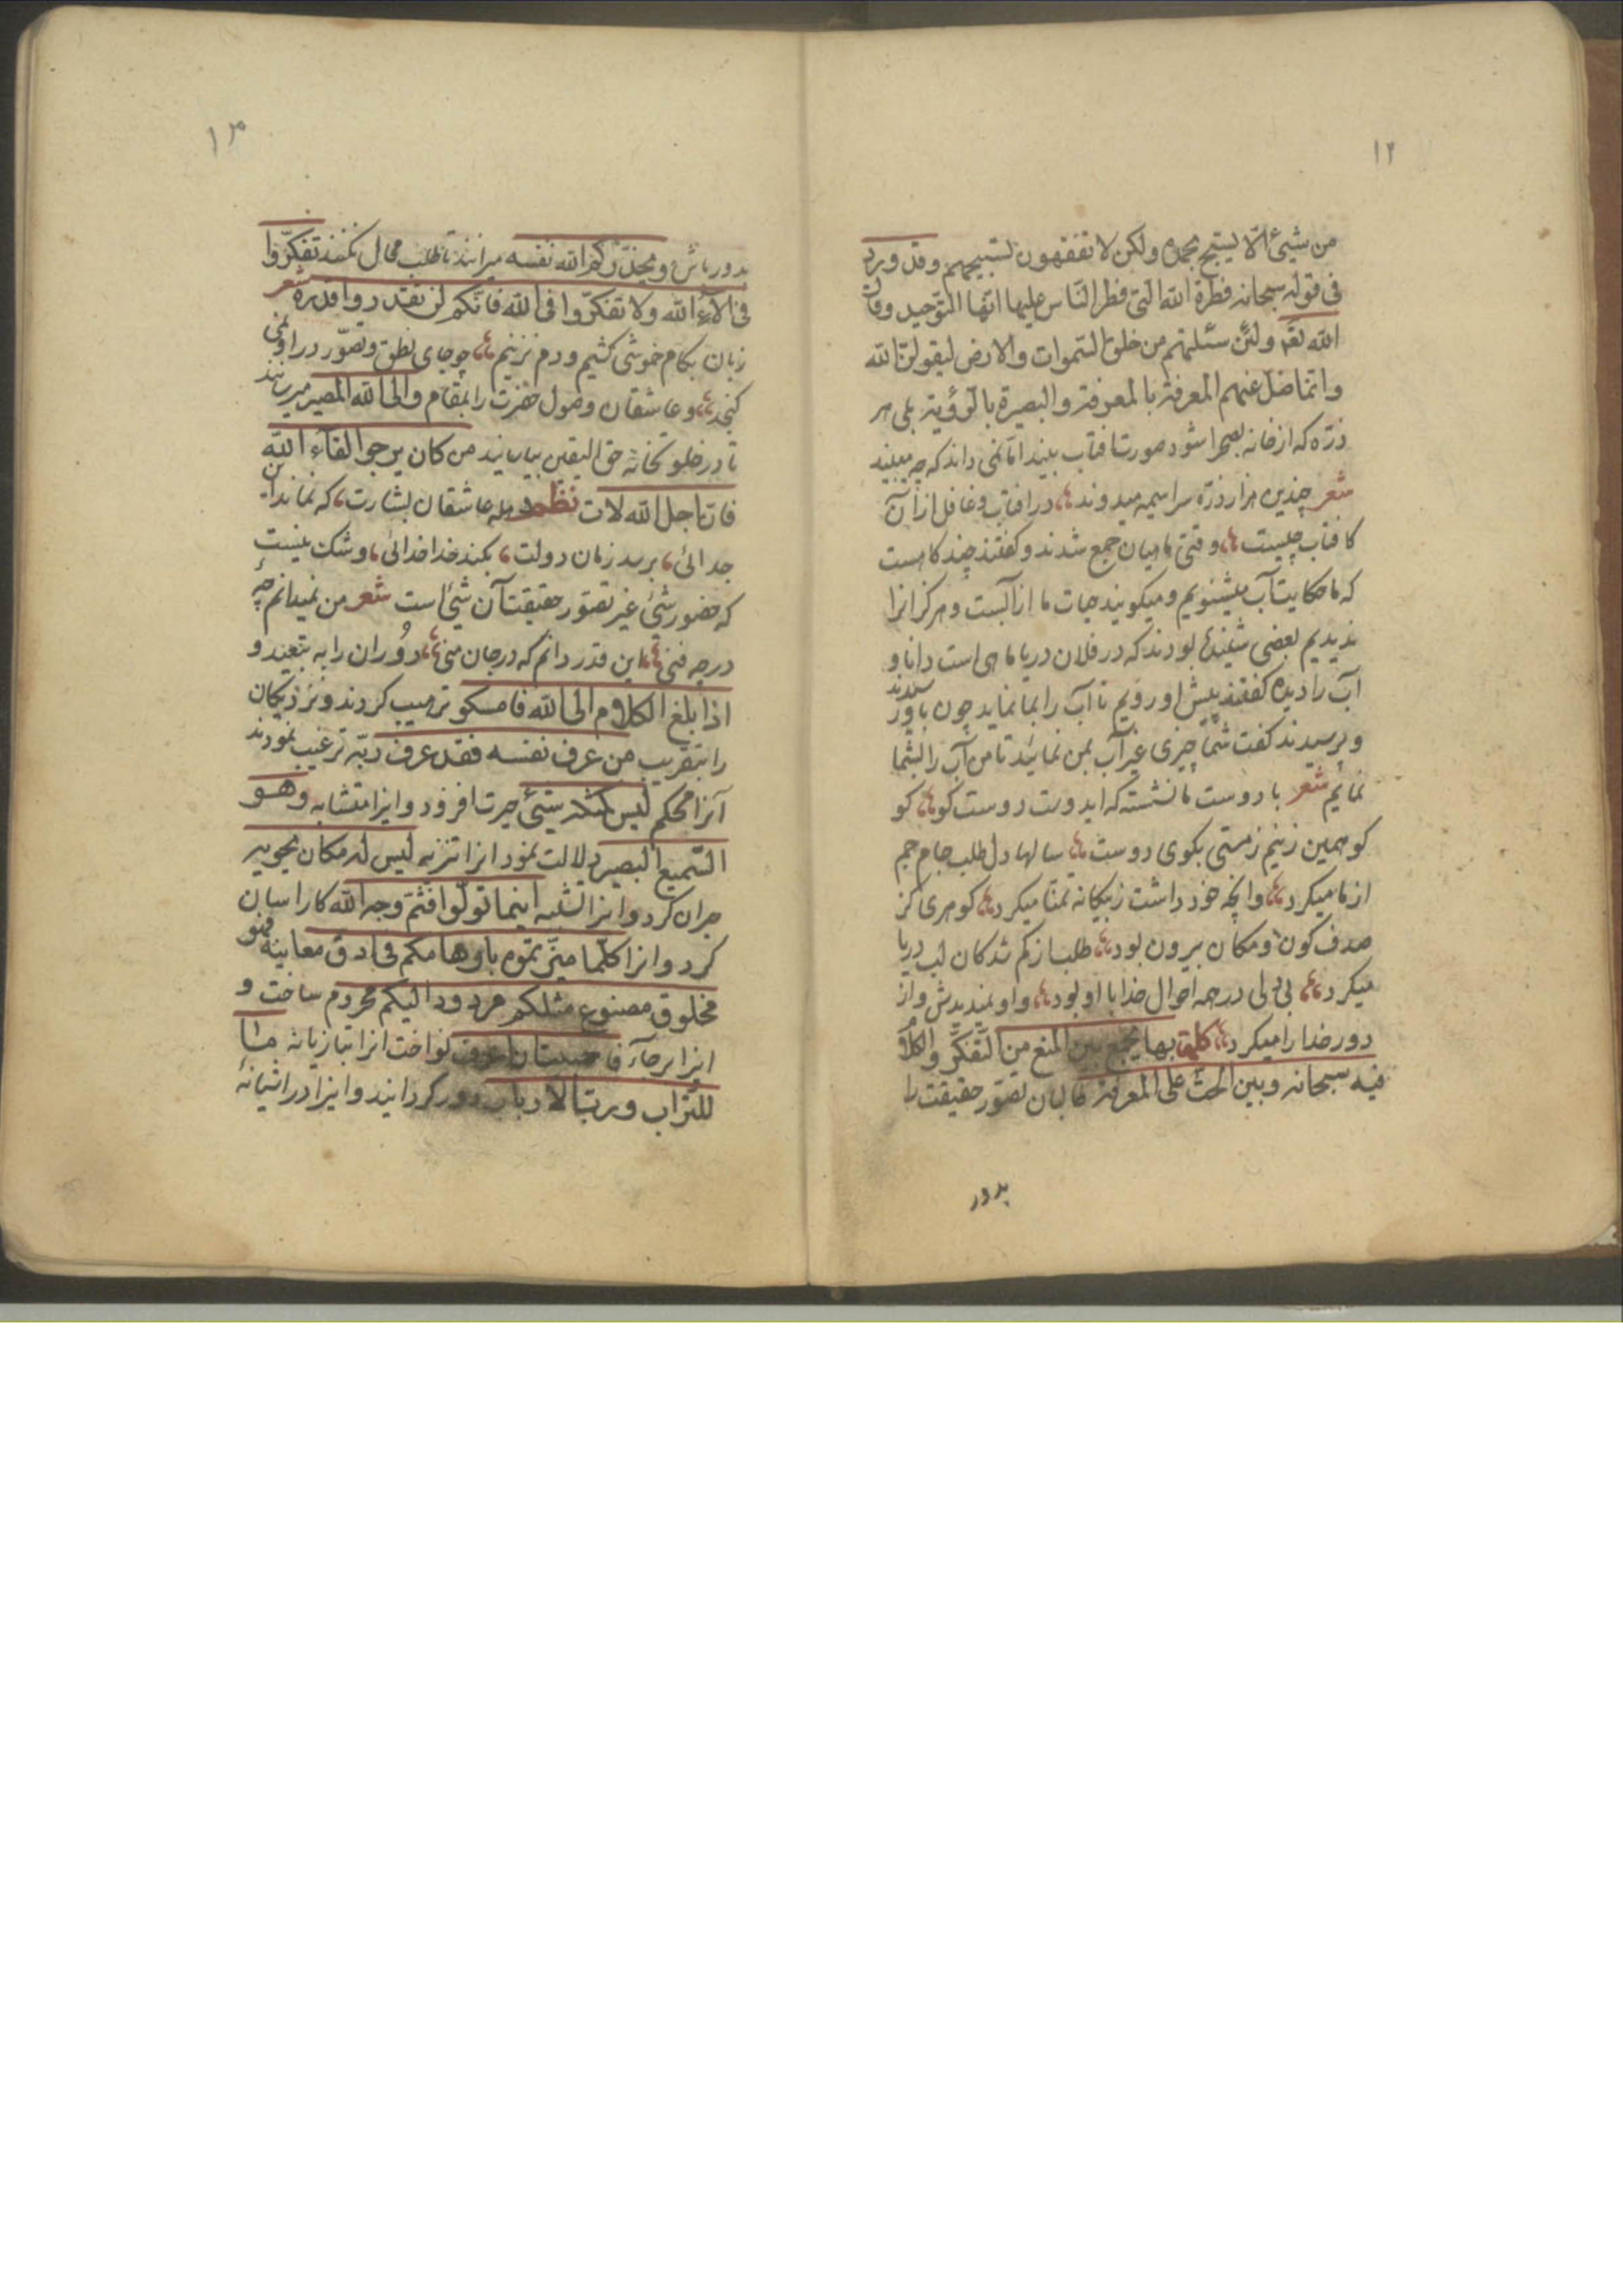 ۱۲
من شیئ الّا یسبّح بحمده ولکن لا تفقهون تسبیحهم وقد ورد
فی قوله سبحانه فطرة الله التی فطر النّاس علیها انّها التّوحید وقال
الله تعٰ ولئن سئلتهم من خلق السّموات والارض لیقولنّ الله
وانّما ضلّ عنهم المعرفة بالمعرفة والبصیرة بالرّؤیة بلی هر
ذرّه که از خانه بصحرا شود صورت افتاب بیند امّا نمی داند که چه میبیند
شعر چندین هزار ذرّه سراسیمه میدوند ؞ در افتاب وغافل ازان
کافتاب چیست ؞ وقتی ماهیان جمع شدند وکفتند چند کاهست
که ما حکایت آب میشنویم ومیکویند حیات ما از آبست وهرکز انرا
ندیدیم بعضی شنیده بودند که در فلان دریا ماهی است دانا و
آب را دیده کفتند پیش او رویم تا آب را بما نماید چون باو رسیدند
وپرسیدند کفت شما چیزی غیر آب بمن نمائید تا من آب را بشما
نمایم شعر با دوست ما نشسته که ایدوست دوست کو ؞ کو
کو همین زنیم زمستی بکوی دوست ؞ سالها دل طلب جام جم
از ما میکرد ؞ وانچه خود داشت زبیکانه تمنّا میکرد ؞ کوهری کز
صدف کون ومکان بیرون بود ؞ طلب از کم شدکان لب دریا
میکرد ؞ بی دلی در همه احوال خدا با او بود ؞ واو نمیدیدش واز
دور خدا را میکرد ؞ کلمة بها یجمع بین المنع من التّفکّر والکلام
فیه سبحانه وبین الحثّ علی المعرفة طالبان تصوّر حقیقت را
بدور
۱۳
بدور باش ویحذّرکم الله نفسه میرانند تا طلب محال نکنند تفکّروا
فی الاء الله ولا تفکّروا فی الله فانّکم لن تقدروا قدره شعر
زبان بکام خموشی کشیم ودم نزنیم ؞ چو جای نطق وتصوّر دراو نمی
کنجد ؞ وعاشقان وصول حضرت را بمقام والی الله المصیر میرسانند
تا در خلوتخانه حقّ الیقین بیاسایند من کان یرجوا لقاء الله
فان اجل الله لات نظم هله عاشقان بشارت ؞ که نماند این
جدائی ؞ برسد زمان دولت ؞ بکند خدا خدائی ؞ وشک نیست
که حضور شئ غیر تصوّر حقیقت آن شئ است شعر من نمیدانم چهٔ
در چه فنی ؞ این قدر دانم که در جان منی ؞ دوران را به تبعید و
اذا بلغ الکلام الی الله فامسکوا ترهیب کردند ونزدیکان
را بتقریب من عرف نفسه فقد عرف ربّه ترغیب نمودند
آنرا محکم لیس کمثله شئ حیرت افزود واینرا متشابه وهو
السّمیع البصیر دلالت نمود انرا تنزیه لیس له مکان یحویه
حیران کرد واینرا تشبیه اینما تولّوا فثمّ وجه الله کار اسان
کرد وانرا کلّما میّزتموه باوهامکم فی ادقّ معانیه فهو
مخلوق مصنوع مثلکم مردود الیکم محروم ساخت و
اینرا برجآء فاحببت ان اعرف نواخت انرا بتازیانه ما
للتّراب وربّ الارباب دور کردانید واینرا در اشیانهٔ